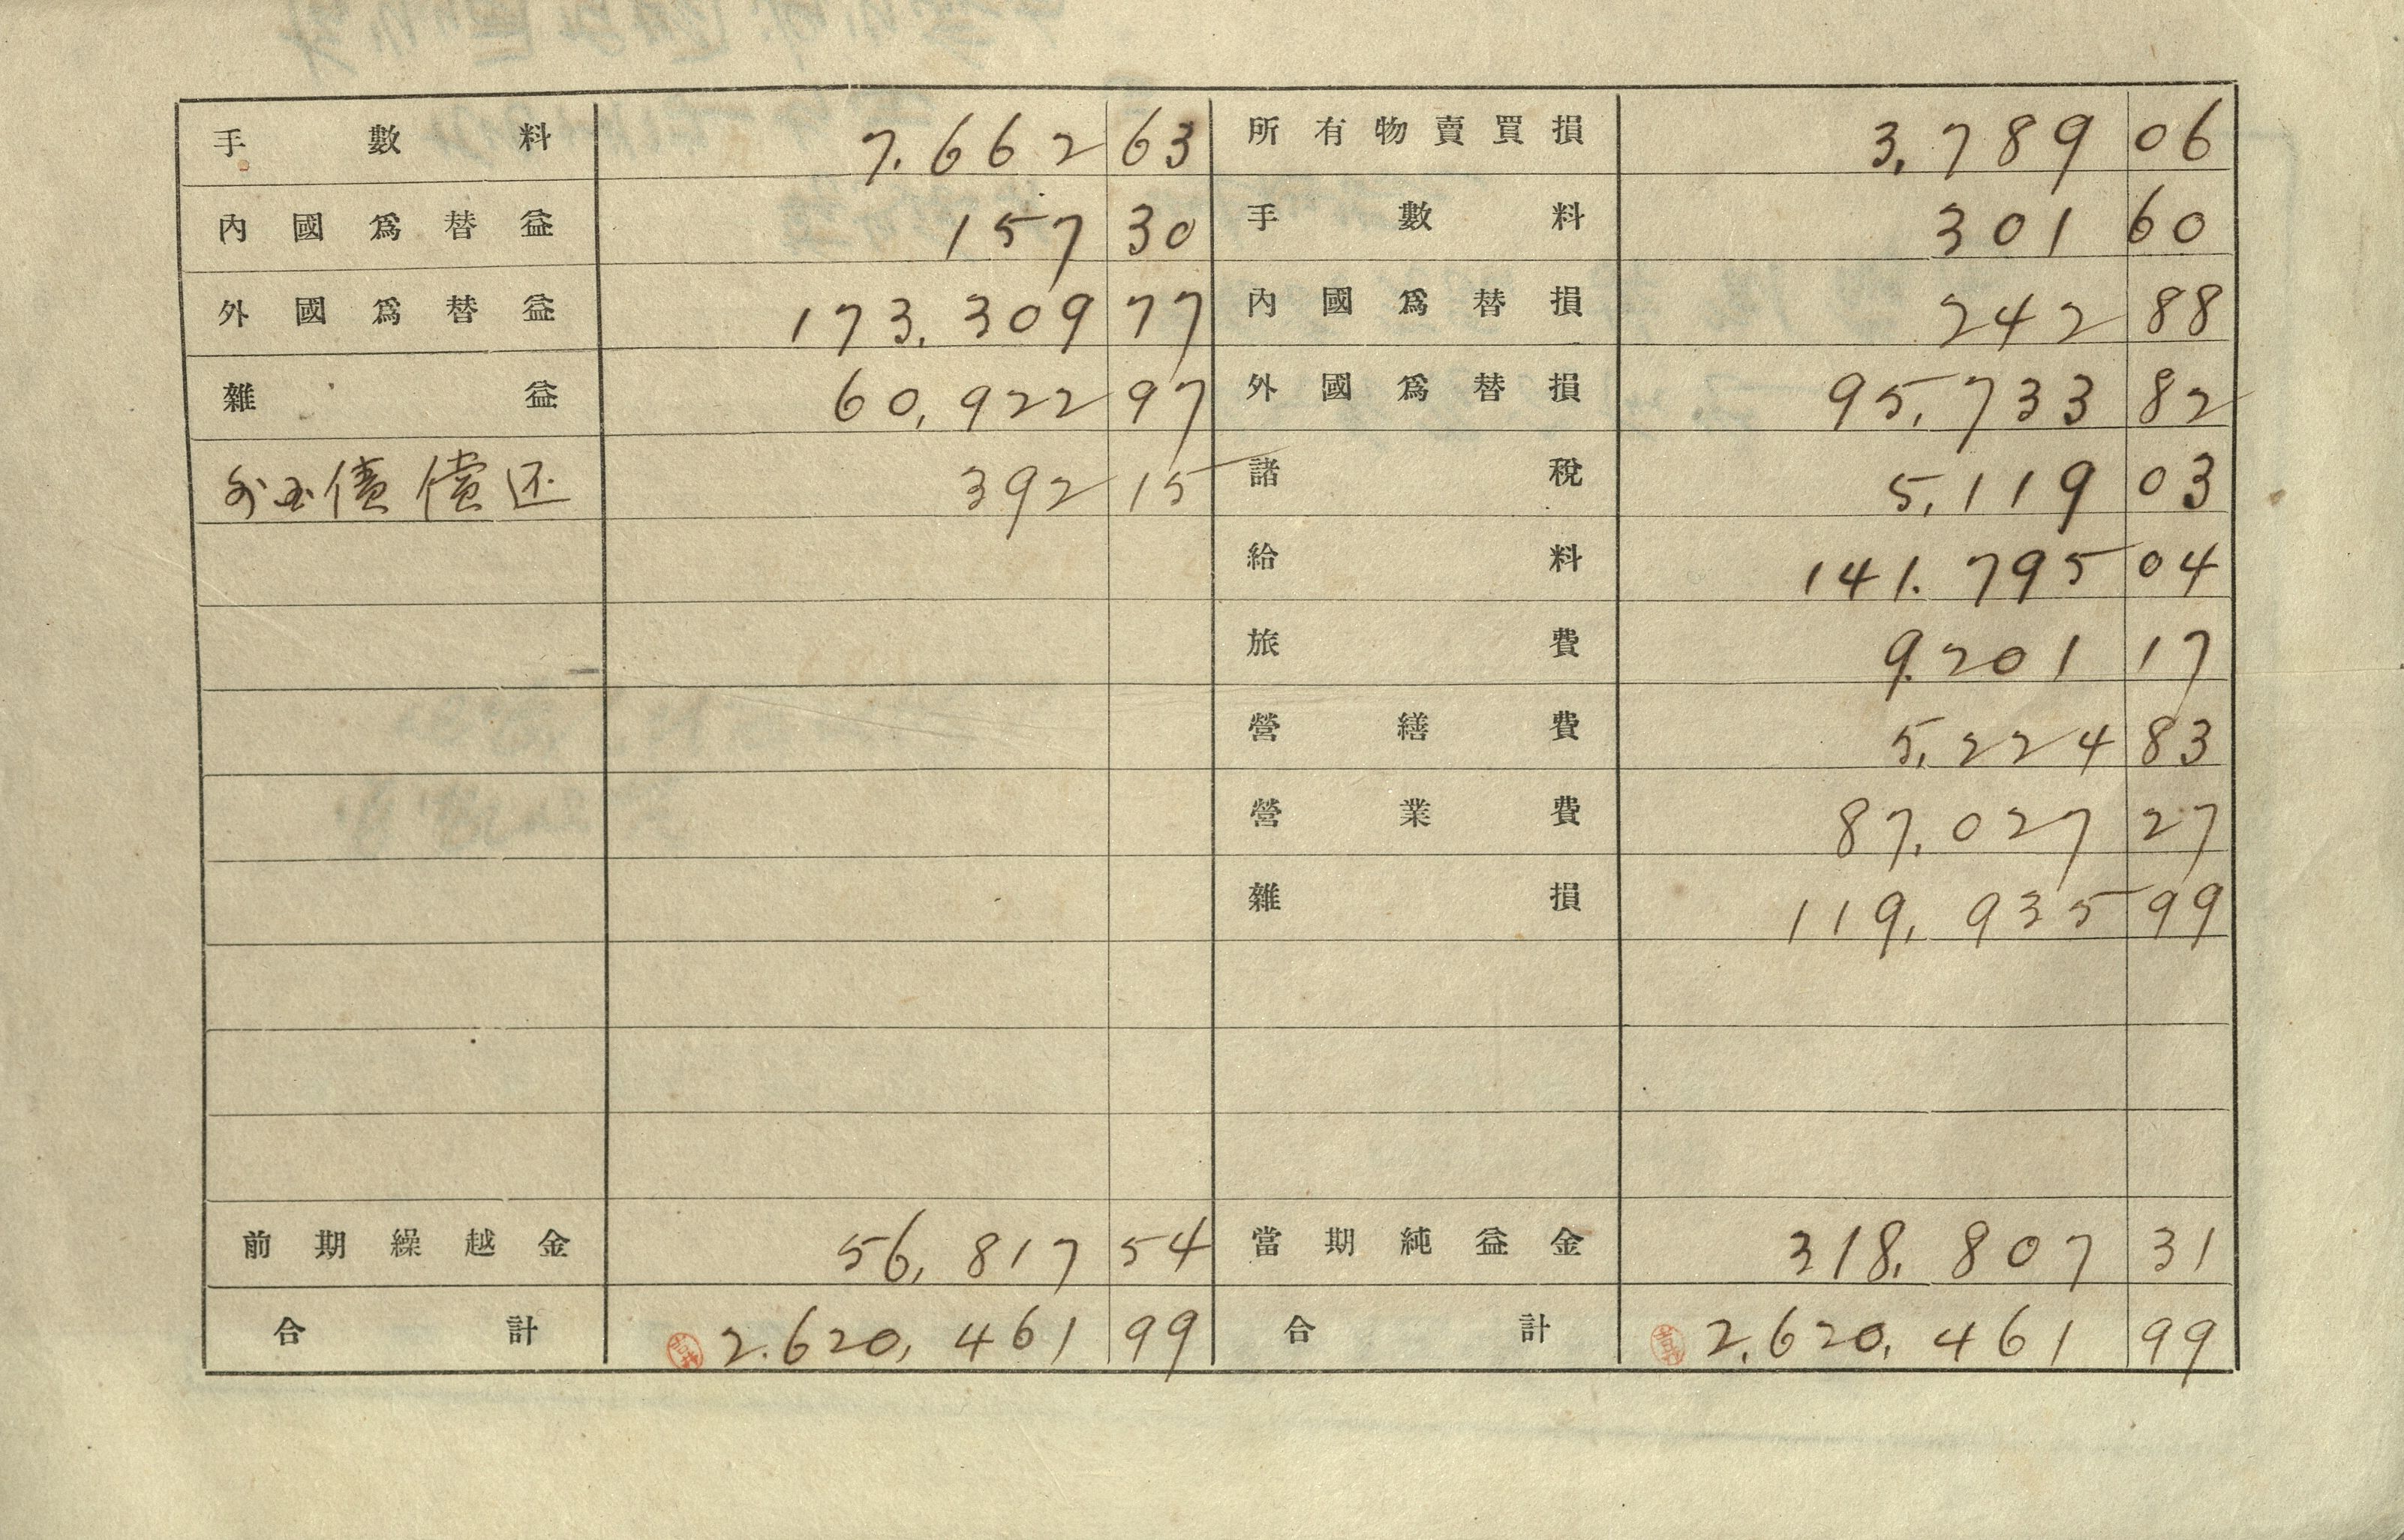 手數料 7.662 63 所有物賣買損 3,789 06
內國爲替益 157 30 手數料 301 60
外國爲替益 173,309 77 內國爲替損 242 88
雜益 60,922 97 外國爲替損 95,733 82
債償还 392 15 諸稅 5,119 03
給料 141.795 04
旅費 9.201 17
營繕費 5,224 83
營業費 87,027 27
雜損 119,935 99
前期繰越金 56,817 54 當期純益金 318,807 31
合計 2.620,461 99 合計 2,620,461 99